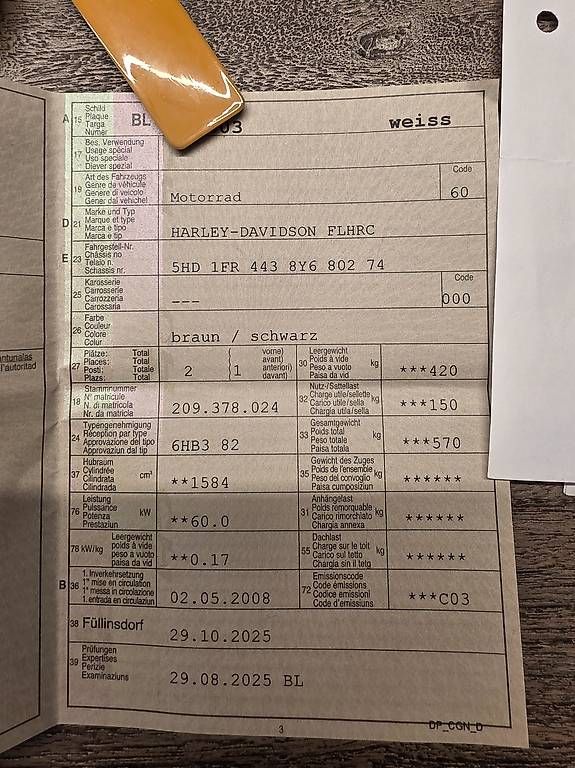 A 15 Schild
Plaque
Targa
Numer
BL
03
weiss
17 Bes. Verwendung
Usage spécial
Uso speciale
Diever spezial
19 Art des Fahrzeugs
Genre de véhicule
Genere di veicolo
Gener dal vehichel
Motorrad
Code
60
D 21 Marke und Typ
Marque et type
Marca e tipo
Marca e tip
HARLEY-DAVIDSON FLHRC
E 23 Fahrgestell-Nr.
Châssis no
Telaio n.
Schassis nr.
5HD 1FR 443 8Y6 802 74
25 Karosserie
Carrosserie
Carrozzeria
Carossaria
---
Code
000
26 Farbe
Couleur
Colore
Colur
braun / schwarz
27 Plätze: Total
Places: Total
Posti: Totale
Plazs: Total
2
vorne)
avant)
anteriori)
davant)
1
30 Leergewicht
Poids à vide
Peso a vuoto
Paisa da vid
kg
***420
18 Stammnummer
N° matricule
N. di matricola
Nr. da matricla
209.378.024
32 Nutz-/Sattellast
Charge utile/sellette
Carico utile/sella
Chargia utila/sella
kg
***150
24 Typengenehmigung
Réception par type
Approvazione del tipo
Approvaziun dal tip
6HB3 82
33 Gesamtgewicht
Poids total
Peso totale
Paisa totala
kg
***570
37 Hubraum
Cylindrée
Cilindrata
Cilindrada
cm³
**1584
35 Gewicht des Zuges
Poids de l'ensemble
Peso del convoglio
Paisa cumposiziun
kg
******
76 Leistung
Puissance
Potenza
Prestaziun
kW
**60.0
31 Anhängelast
Poids remorquable
Carico rimorchiato
Chargia annexa
kg
******
78 kW/kg
Leergewicht
poids à vide
peso a vuoto
paisa da vid
**0.17
55 Dachlast
Charge sur le toit
Carico sul tetto
Chargia sin il tetg
kg
******
B 36 1. Inverkehrsetzung
1re mise en circulation
1a messa in circolazione
1. entrada en circulaziun
02.05.2008
72 Emissionscode
Code émissions
Codice emissioni
Code d'emissiuns
***C03
38 Füllinsdorf
29.10.2025
39 Prüfungen
Expertises
Perizie
Examinaziuns
29.08.2025 BL
3
DP_CGN_D